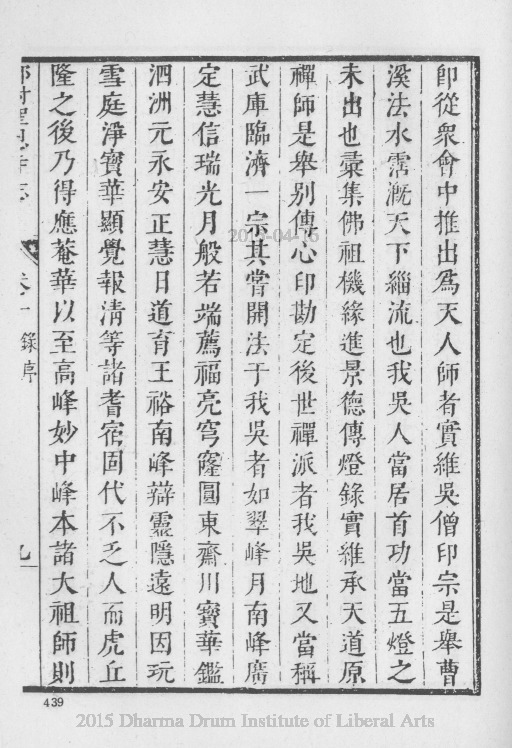 卽從衆會中推出爲天人師者實維吳僧印宗是舉曹
溪法水霑漑天下緇流也我吳人當居首功當五燈之
未出也彙集佛祖機緣進景德傳燈錄實維承天道原
禪師是舉別傳心印勘定後世禪派者我吳地又當稱
武庫臨濟一宗其嘗開法于我吳者如翠峰月南峰廣
定慧信瑞光月般若端薦福亮穹窿圓東齋川寶華鑑
泗洲元永安正慧日道育王裕南峰辯靈隱遠明因玩
雪庭淨寶華顯覺報清等諸耆宿固代不乏人而虎丘
隆之後乃得應菴華以至高峰妙中峰本諸大祖師則
卷一 錄序 九
439
2015-04-16
2015 Dharma Drum Institute of Liberal Arts